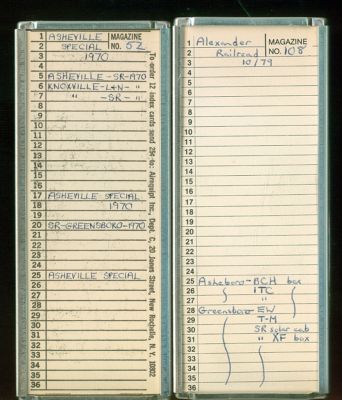 1 ASHEVILLE MAGAZINE
2 SPECIAL NO. 52
3 1970
4
5 ASHEVILLE-SR-1970
6 KNOXVILLE-L&N- "
7 " -SR- "
8
9
10
11
12
13
14
15
16
17 ASHEVILLE SPECIAL
18 1970
19
20 SR-GREENSBORO-1970
21
22
23
24
25 ASHEVILLE SPECIAL
26
27
28
29
30
31
32
33
34
35
36
To order 12 index cards send 25¢ to: Airequipt Inc., Dept. C, 20 Jones Street, New Rochelle, N. Y. 10802
1 Alexander MAGAZINE
2 Railroad NO. 108
3 10/79
4
5
6
7
8
9
10
11
12
13
14
15
16
17
18
19
20
21
22
23
24
25 Asheboro-BCH box
26 ITC
27 "
28 Greensboro-EW
29 T-M
30 SR solar cab
31 " XF box
32
33
34
35
36